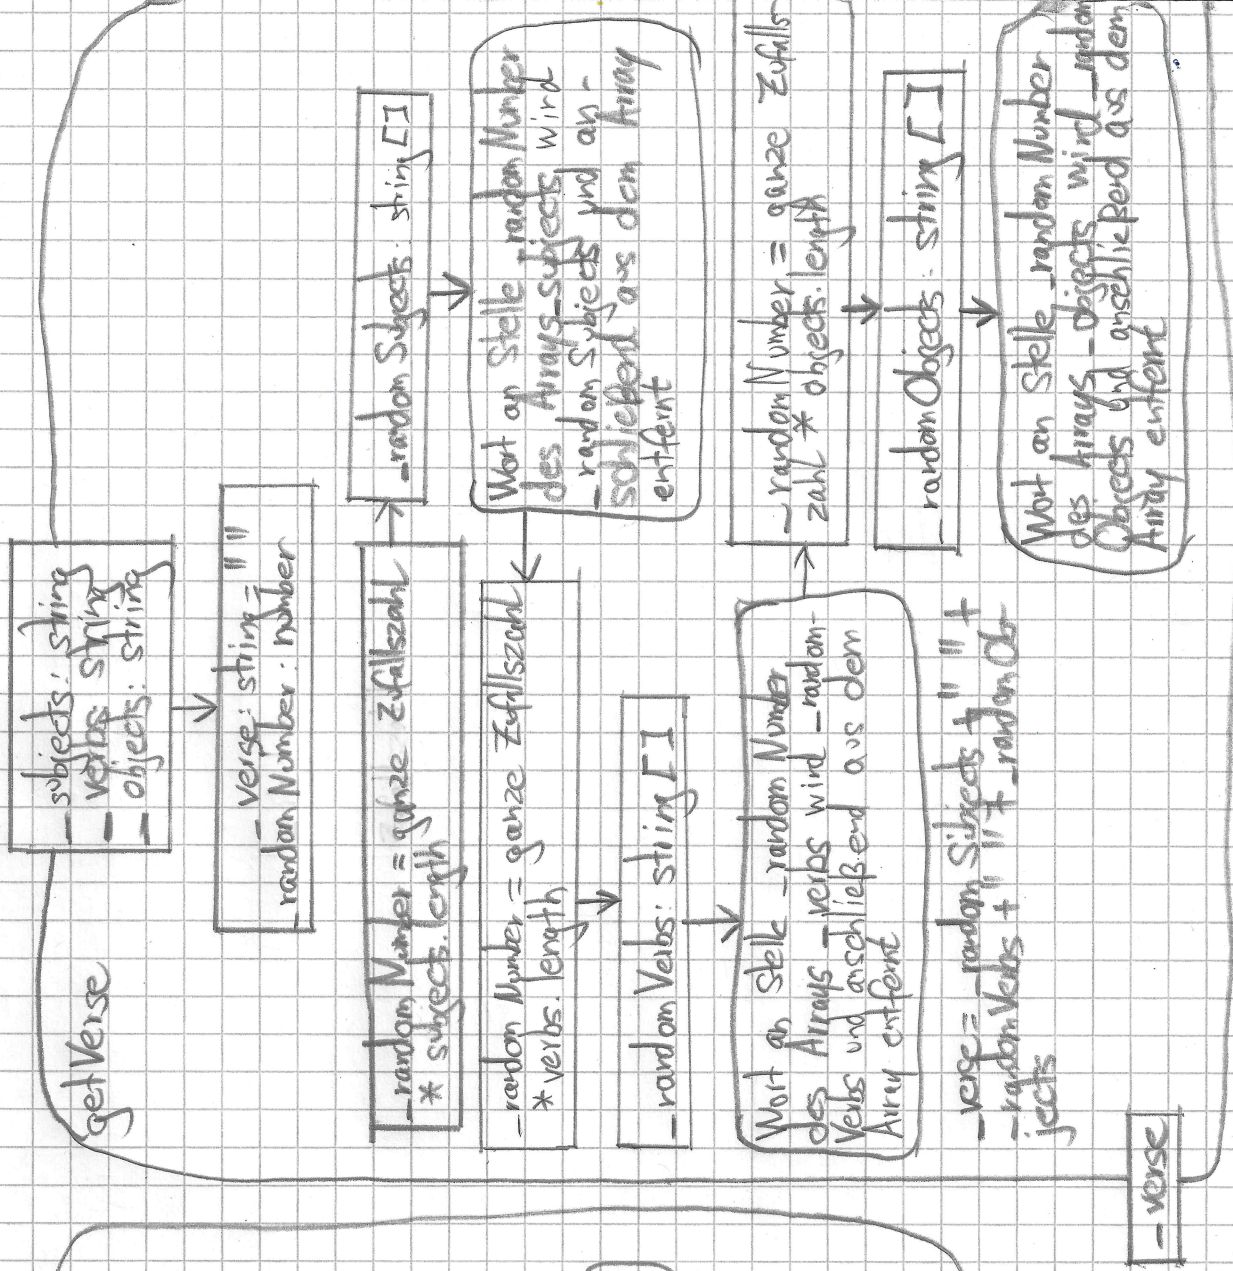 getVerse
_subjects: string
_verbs: string
_objects: string
_verse: string = " "
_random Number : number
_random Number = ganze Zufallszahl
* subjects.length
_random Subjects: string []
Wort an Stelle _random Number
des Arrays _subjects wird
_random Subjects und an-
schließend aus dem Array
entfernt
_random Number = ganze Zufallszahl
* verbs.length
_random Verbs: string []
Wort an Stelle _random Number
des Arrays _verbs wird _random-
Verbs und anschließend aus dem
Array entfernt
_random Number = ganze Zufalls-
zahl * objects.length
_randomObjects: string []
Wort an Stelle _random Number
des Arrays _objects wird _random
Objects und anschließend aus dem
Array entfernt
_verse = _random Subjects + " " +
_randomVerbs + " " + _random Ob-
jects
_verse